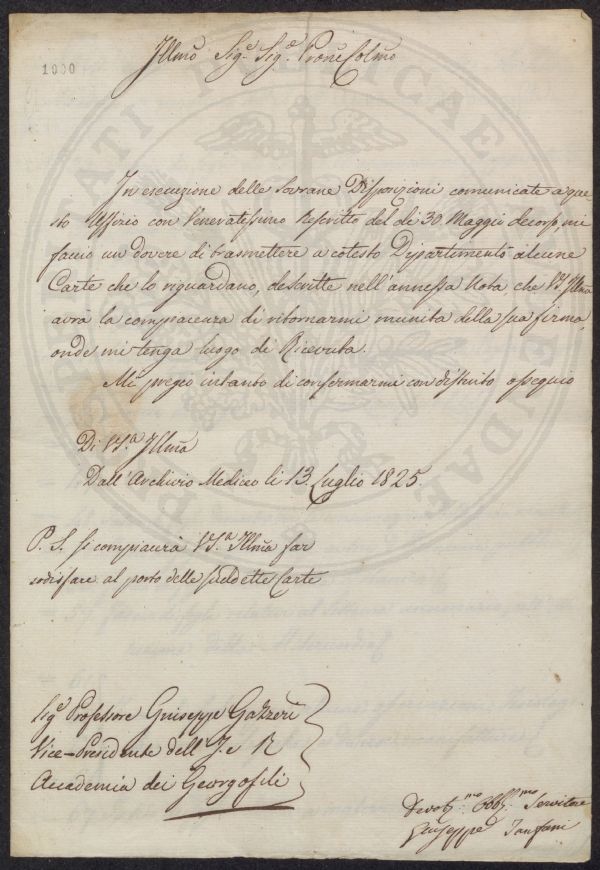 1000
Illmo Sigr. Sigr. Prone Colmo
In esecuzione delle Sovrane Disposizioni comunicate a que-
sto Uffizio con Veneratissimo Rescritto del dì 30 Maggio decorso, mi
faccio un dovere di trasmettere a cotesto Dipartimento alcune
Carte che lo riguardano, descritte nell'annessa Nota, che VS. Illma
avrà la compiacenza di ritornarmi munita della sua firma,
onde mi tenga luogo di Ricevuta.
Mi pregio intanto di confermarmi con distinto ossequio
Di VS.a Illma
Dall'Archivio Mediceo li 13. Luglio 1825.
P. S. Si compiacerà VS.a Illma far
sodisfare al porto delle suddette Carte
Sige Professore Giuseppe Gazzeri
Vice-Presidente dell'I. e R
Accademia dei Georgofili
Devotmo Obblmo Servitore
Giuseppe Tanfani